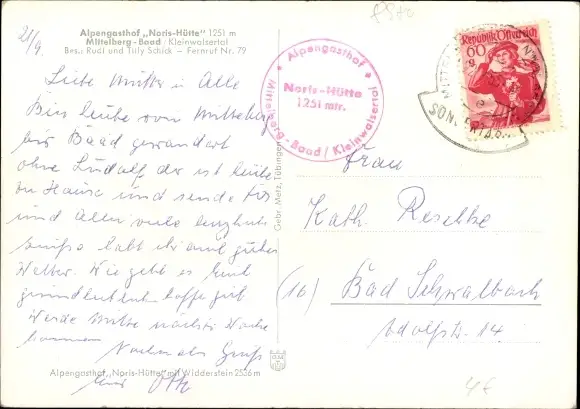 21/9.
Alpengasthof „Noris-Hütte" 1251 m
Mittelberg-Baad/Kleinwalsertal
Bes.: Rudl und Tilly Schick – Fernruf Nr. 79
Liebe Mutter u Alle
Bin heute von Mittelberg
bis Baad gewandert
ohne Ludolf der ist heute
zu Hause und sende Dir
und Allen viele herzliche
Grüße habt ihr auch gutes
Wetter. Wie geht es
hoffe gut
Werde Mitte nächste Woche
kommen
Nochmals Gruß
Otto
Alpengasthof „Noris-Hütte" mit Widderstein 2536 m
Gebr. Metz, Tübingen
Alpengasthof
Noris-Hütte
1251 mtr.
Mittelberg-Baad/Kleinwalsertal
Republik Österreich
60 g
Frau
Kath. Reschke
(16) Bad Schwalbach
Adolfstr. 14
4€